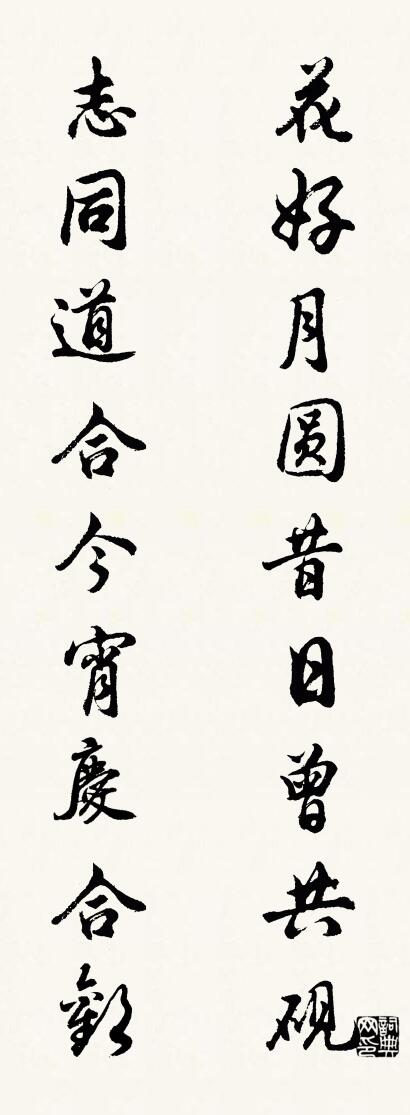 花好月圆昔日曾共砚
志同道合今宵慶合歡
詞典网印